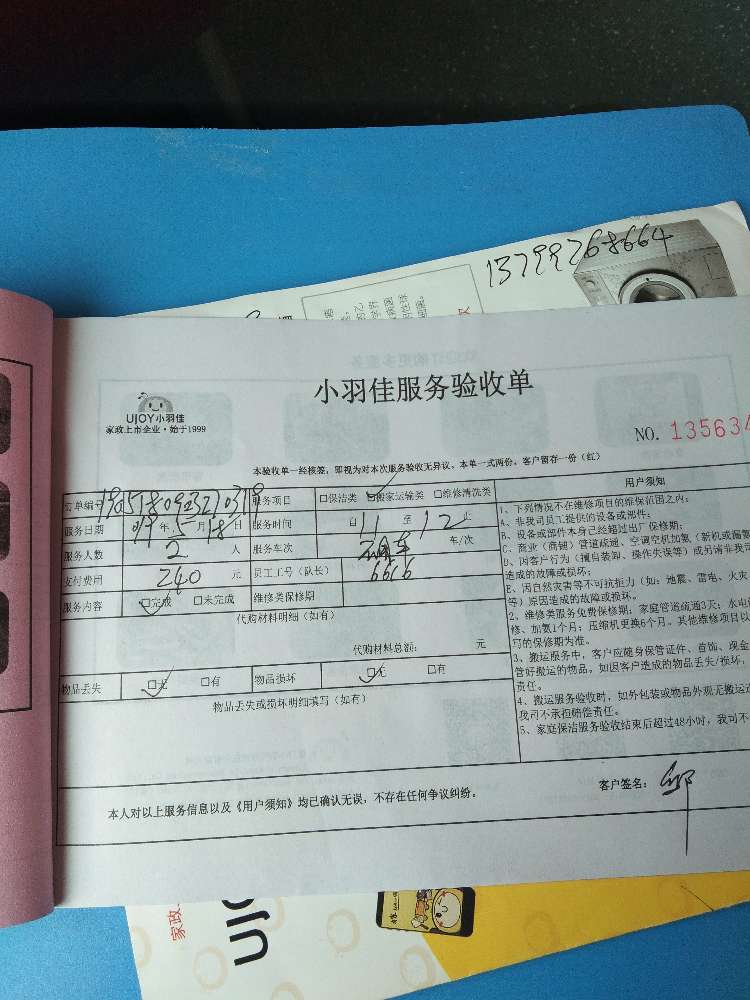 13799268664
小羽佳服务验收单
UJOY小羽佳
家政上市企业·始于1999
NO. 135634
本验收单一经核签，即视为对本次服务验收无异议。本单一式两份，客户留存一份（红）
服务项目 □保洁类 ☑搬家运输类 □维修清洗类
服务日期 19 年 5 月 18 日 服务时间 自 11 至 12 止
服务人数 2 人 服务车次 车/次
支付费用 240 元 员工工号（队长） 6666
服务内容 ☑完成 □未完成 维修类保修期
代购材料明细（如有）
代购材料总额： 元
物品丢失 ☑无 □有 物品损坏 ☑无 □有
物品丢失或损坏明细填写（如有）
用户须知
1、下列情况不在维修项目的维保范围之内：
A、非我司员工提供的设备或部件；
B、设备或部件本身已经超过出厂保修期；
C、商业（商铺）管道疏通、空调空机加氟（新机或漏氟
D、因客户行为（擅自装卸、操作失误等）或另请非我司
造成的故障或损坏；
E、因自然灾害等不可抗拒力（如：地震、雷电、火灾
等）原因造成的故障或损坏。
2、维修类服务免费保修期：家庭管道疏通3天；水电维
修、加氟1个月；压缩机更换6个月。其他维修项目以
写的保修期为准。
3、搬运服务中，客户应随身保管证件、首饰、现金
管好搬运的物品。如因客户造成的物品丢失/损坏，
责任。
4、搬运服务验收时，如外包装或物品外观无搬运
我司不承担赔偿责任。
5、家庭保洁服务验收结束后超过48小时，我司不
本人对以上服务信息以及《用户须知》均已确认无误，不存在任何争议纠纷。
客户签名：
家政
UJO